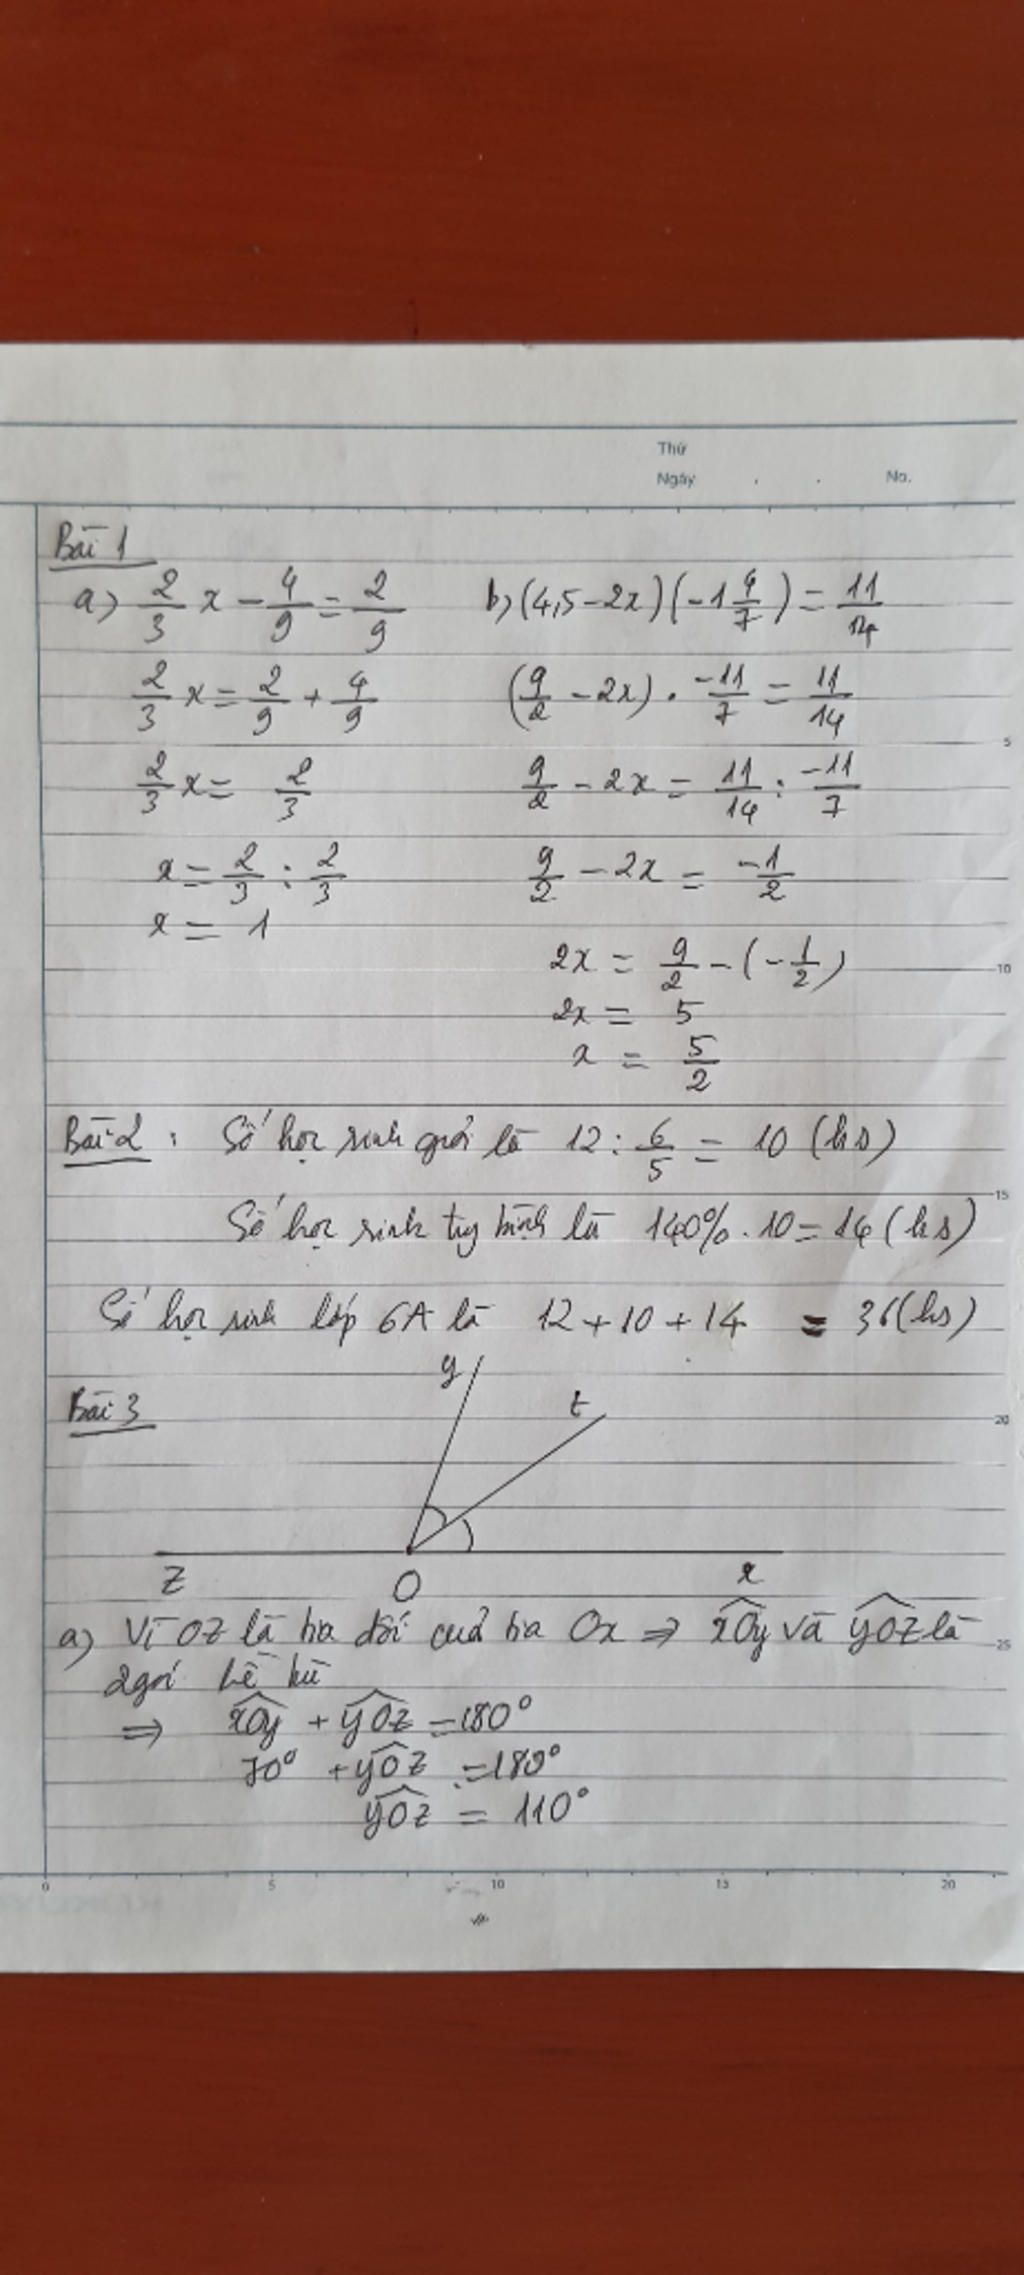 Thứ
Ngày . . No.
Bài 1
a) 2/3 x - 4/9 = 2/9
2/3 x = 2/9 + 4/9
2/3 x = 2/3
x = 2/3 : 2/3
x = 1
b) (4,5 - 2x) (-1 4/7) = 11/14
(9/2 - 2x) . -11/7 = 11/14
9/2 - 2x = 11/14 : -11/7
9/2 - 2x = -1/2
2x = 9/2 - (-1/2)
2x = 5
x = 5/2
Bài 2 : Số học sinh giỏi là 12 : 6/5 = 10 (hs)
Số học sinh tg bình là 140% . 10 = 14 (hs)
Số học sinh lớp 6A là 12 + 10 + 14 = 36 (hs)
Bài 3
y
t
z O x
a) Vì Oz là tia đối của tia Ox ⇒ xÔy và yÔz là
2 góc kề bù
⇒ xÔy + yÔz = 180°
70° + yÔz = 180°
yÔz = 110°
5
10
15
20
25
0 5 10 15 20